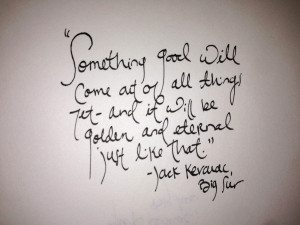 "Something good will
come out of all things
yet - and it will be
golden and eternal
just like that."
- Jack Kerouac,
Big Sur